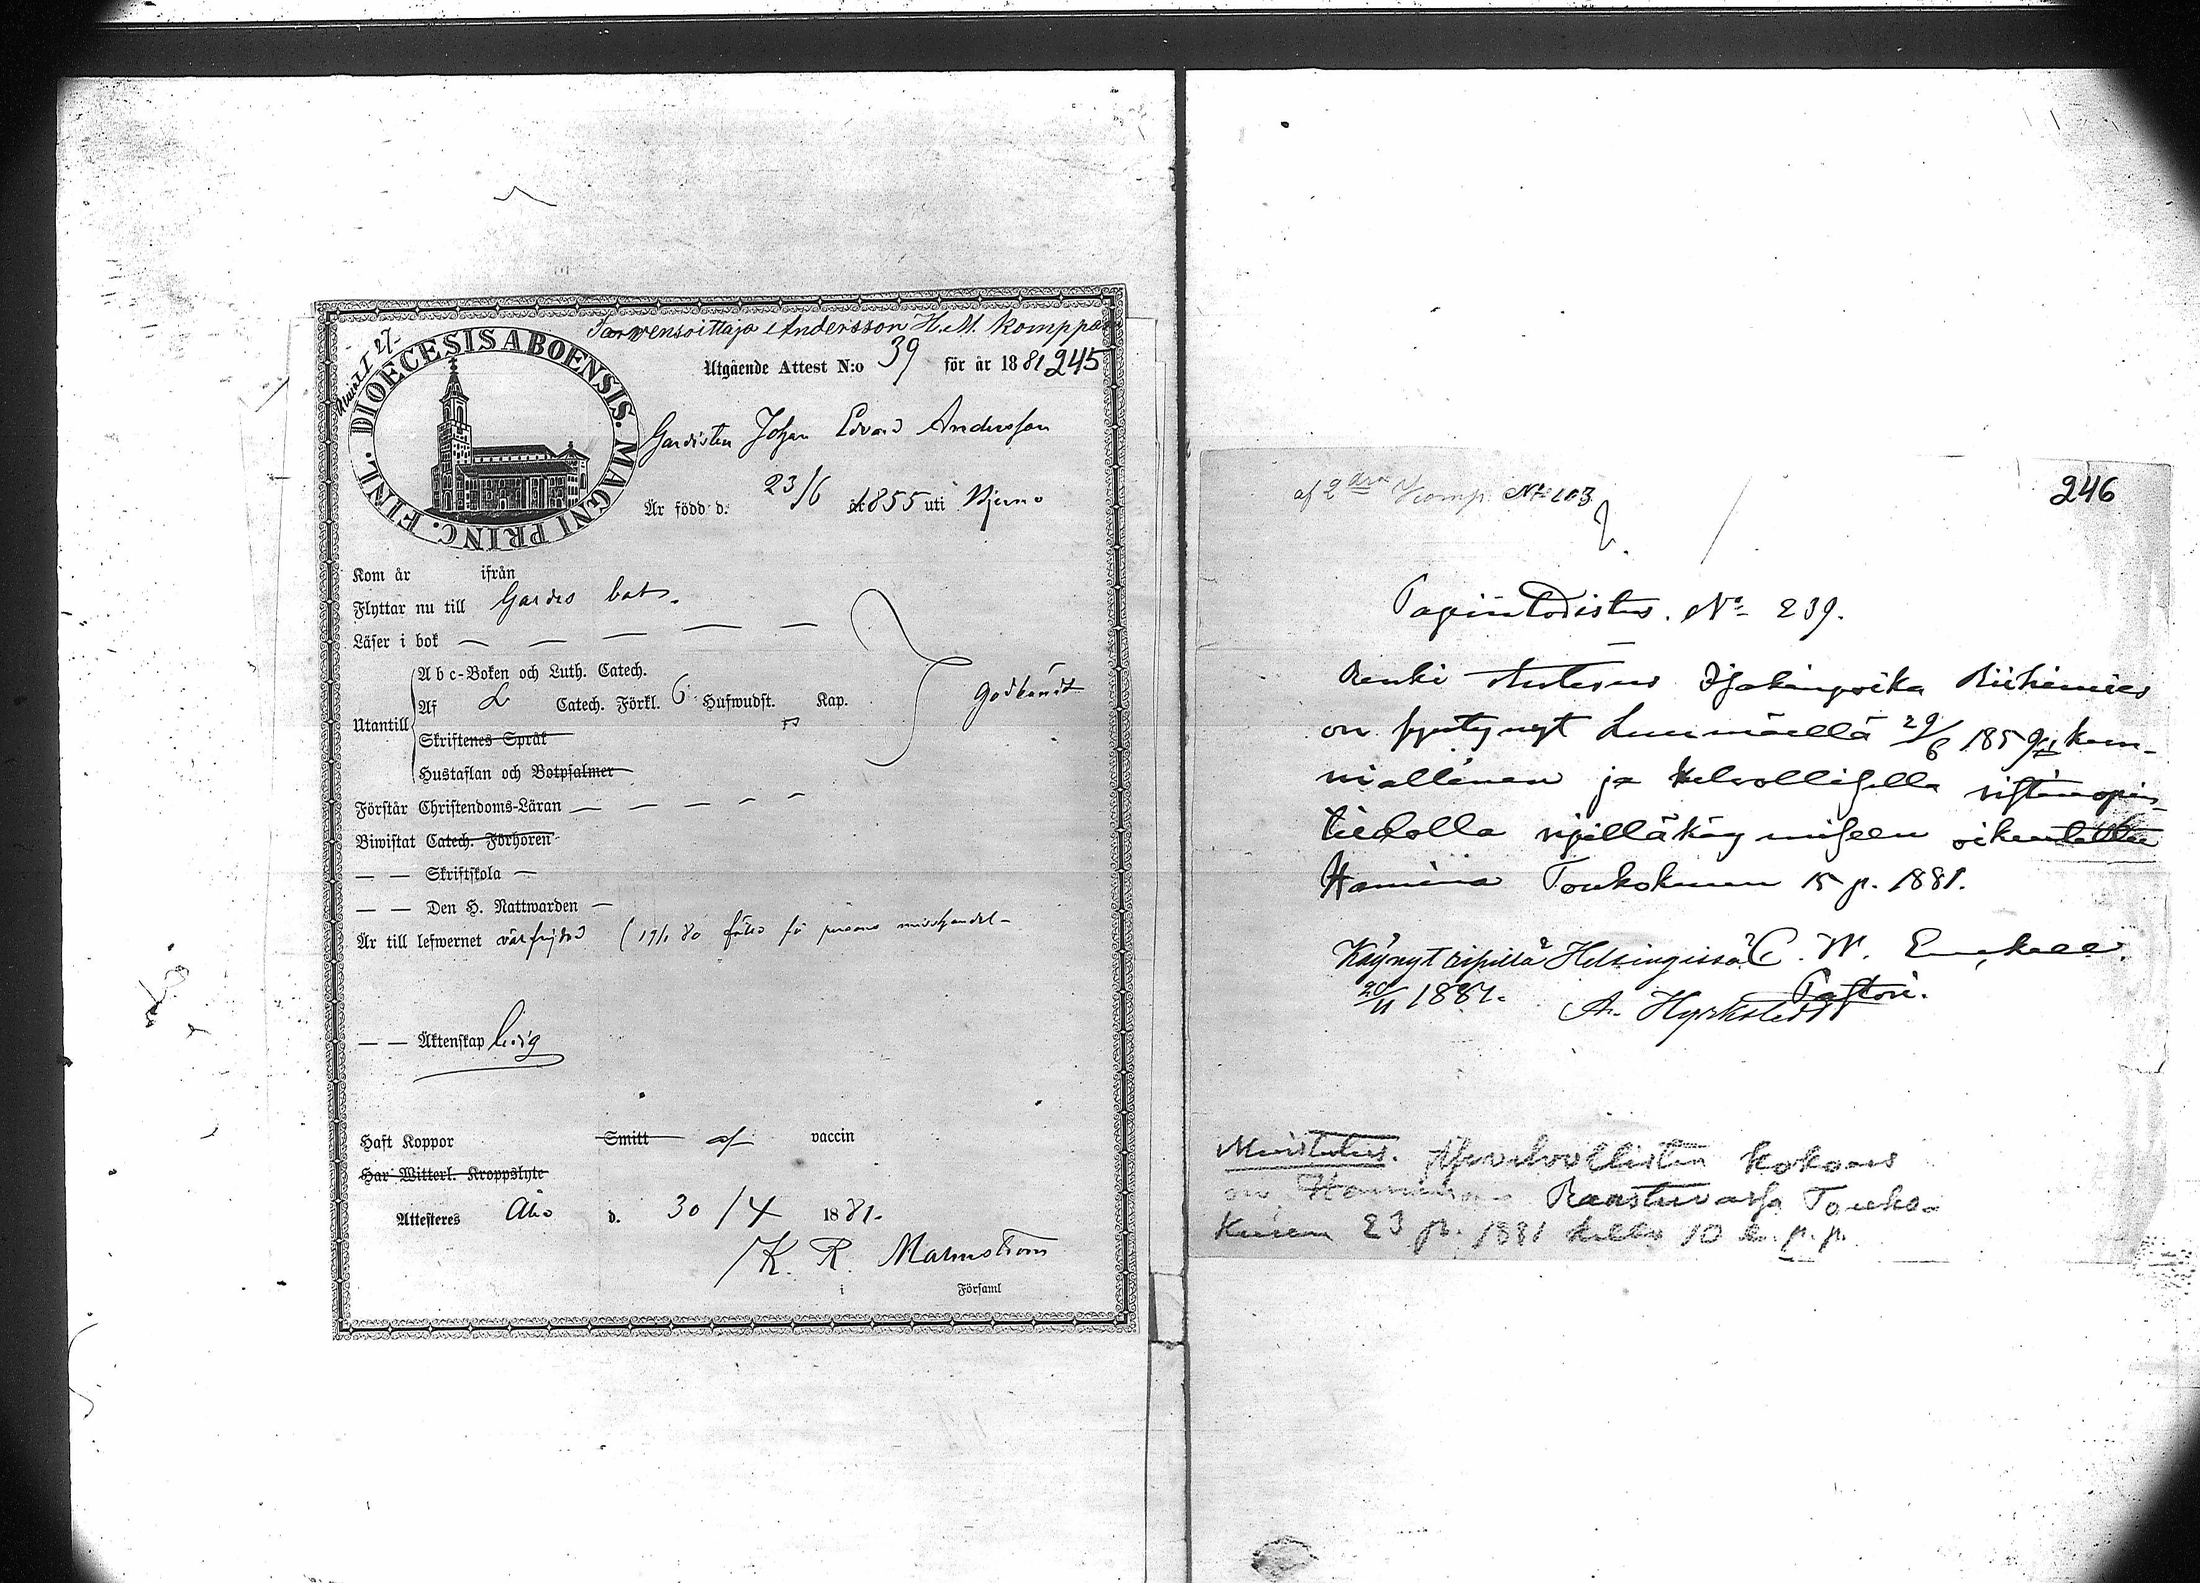 Torvensoittaja Andersson H.M. Komppan
Utgående Attest N:o 39 för år 1881 245
DIOECESIS ABOENSIS. MAGNI PRINC. FINL.
Gardisten Johan Edvard Andersson
Är född d. 23/6 1855 uti Bjerno
Kom år ifrån
Flyttar nu till Gardes bat.
Läser i bok
Utantill
Abc-Boken och Luth. Catech.
Af L Catech. Förkl. 6 Hufwudst. Kap.
Skriftenes Språk
Hustaflan och Botpsalmer
godkändt
Förstår Christendoms-Läran
Biwistat Catech. Förhören
— — Skriftskola —
— — Den H. Nattwarden —
Är till lefwernet välfrejdad (19/1 80 fälld för misshandel
— — Äktenskap ledig
Haft Koppor Smitt af vaccin
Har Witterl. Kroppslyte
Attesteres Åbo d. 30/4 1881.
K. R. Malmström
i Församl
af 2dra Komp. No 103
246
Papintodistus. No 239.
Renki Isakinpoika Riihimies
on syntynyt Luumäellä 29/6 1859, kun-
niallinen ja kelvollisella ristinopin
tiedolla ripilläkäymiseen oikeutettu
Hamina Toukokuun 15 p. 1881.
C. W. Enckell.
Pastori.
Käynyt ripillä Helsingissä
20/11 1881.
A. Hyrkstedt
Muistutus. Asevelvollisten kokous
on Haminan Raastuvassa Touko-
kuun 23 p. 1881 kello 10 e. p. p.